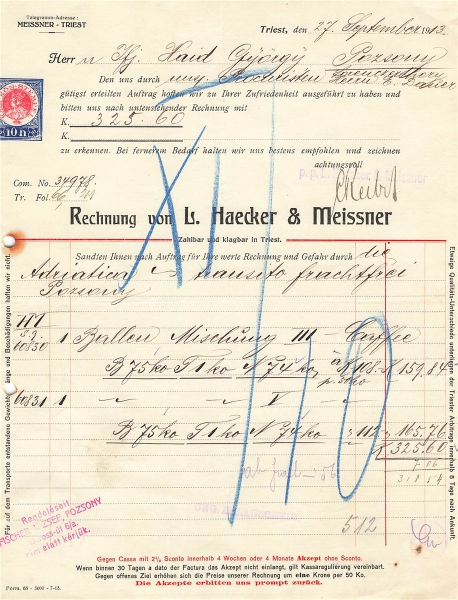 Telegramm-Adresse:
MEISSNER - TRIEST
Triest, den 27. September 1913.
Herrn Ifj. Haid György Pozsony
Den uns durch
gütigst erteilten Auftrag hoffen wir zu Ihrer Zufriedenheit ausgeführt zu haben und
bitten uns nach untenstehender Rechnung mit
K 325.60
K
zu erkennen. Bei fernerem Bedarf halten wir uns bestens empfohlen und zeichnen
achtungsvoll
10 h
Com. No. 34978.
Tr. Fol.
Rechnung von L. Haecker & Meissner
Zahlbar und klagbar in Triest.
Sandten Ihnen nach Auftrag für Ihre werte Rechnung und Gefahr durch die
Adriatica transito frachtfrei
Pozsony
1 Ballen Mischung III Caffee
B 75ko T 1ko N 74ko K 108.- K 159.84
p. 50ko
1 " " V "
B 75ko T 1ko N 74ko " 112 " 165.76
K 325.60
7 06
318 54
512
Rendeléseit
FISCHER JÓZSEF, POZSONY
alatt kérjük.
Gegen Cassa mit 2% Sconto innerhalb 4 Wochen oder 4 Monate Akzept ohne Sconto.
Wenn binnen 30 Tagen a dato der Factura das Akzept nicht einlangt, gilt Kassaregulierung vereinbart.
Gegen offenes Ziel erhöhen sich die Preise unserer Rechnung um eine Krone per 50 Ko.
Die Akzepte erbitten uns prompt zurück.
Form. 65 - 5000 - 7-13.
Für auf dem Transporte entstandene Gewichts- und Beschädigungen haften wir nicht.
Etwaige Qualitäts-Unterschiede unterliegen der Triester Arbitrage innerhalb 8 Tage nach Ankunft.